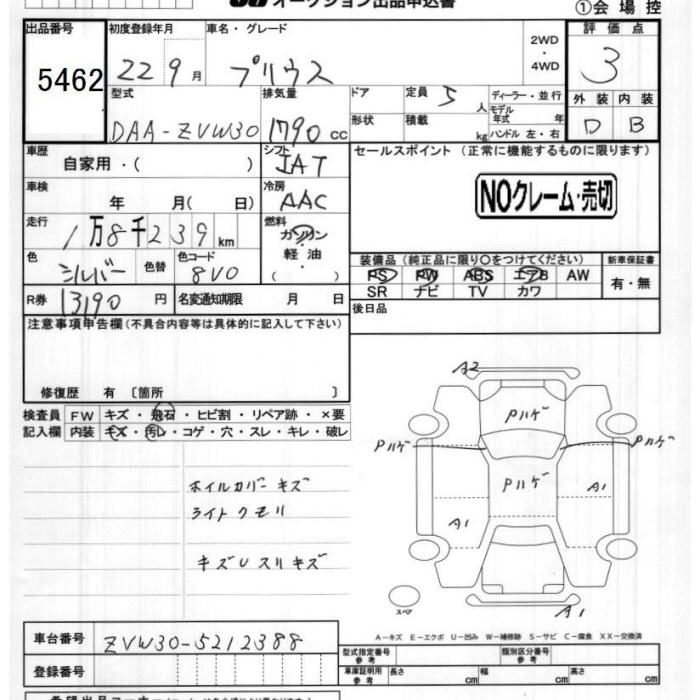 オークション出品申込書
①会場控
出品番号
5462
初度登録年月
22 9 月
車名・グレード
プリウス
2WD
・
4WD
評価点
3
外装 内装
D B
型式
DAA-ZVW30
排気量
1790 cc
ドア
形状
定員 5 人
積載 kg
ディーラー・並行
モデル年式 年
ハンドル 左・右
車歴
自家用・( )
シフト
IAT
セールスポイント (正常に機能するものに限ります)
NOクレーム・売切
車検
年 月( 日)
冷房
AAC
走行
1万8千239 km
燃料
ガソリン
・
軽油
( )
色
シルバー
色替
色コード
8V0
装備品 (純正品に限り○をつけてください)
新車保証書
PS PW ABS エアB AW
SR ナビ TV カワ
有・無
R券 13190 円
名変通知期限 月 日
後日品
注意事項申告欄(不具合内容等は具体的に記入して下さい)
修復歴 有 〔箇所 〕
検査員
記入欄
FW キズ・飛石・ヒビ割・リペア跡・×要
内装 キズ・汚レ・コゲ・穴・スレ・キレ・破レ
A2
Pハゲ
Pハゲ
Pハゲ
Pハゲ
A1
A1
A1
スペア
ホイルカバー キズ
ライトクモリ
キズU スリキズ
A-キズ E-エクボ U-凹み W-補修跡 S-サビ C-腐食 XX-交換済
車台番号
ZVW30-5212388
登録番号
型式指定番号
参考
類別区分番号
参考
車庫証明用
参考
長さ cm
幅 cm
高さ cm